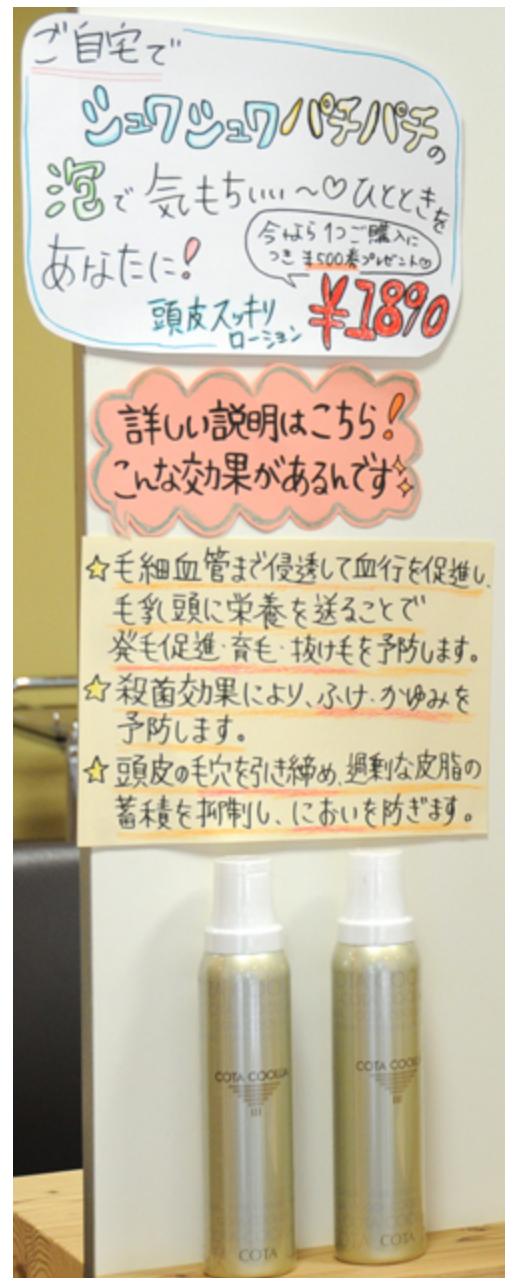 ご自宅で
シュワシュワパチパチの
泡で気もちいい〜♡ひとときを
あなたに!
今なら1つご購入に
つき¥500券プレゼント
¥1890
頭皮スッキリ
ローション
詳しい説明はこちら!
こんな効果があるんです
☆毛細血管まで侵透して血行を促進し、
毛乳頭に栄養を送ることで
発毛促進・育毛・抜け毛を予防します。
☆殺菌効果により、ふけ・かゆみを
予防します。
☆頭皮の毛穴を引き締め、過剰な皮脂の
蓄積を抑制し、においを防ぎます。
COTA COOLLA
III
COTA
COTA COOLL
III
COTA